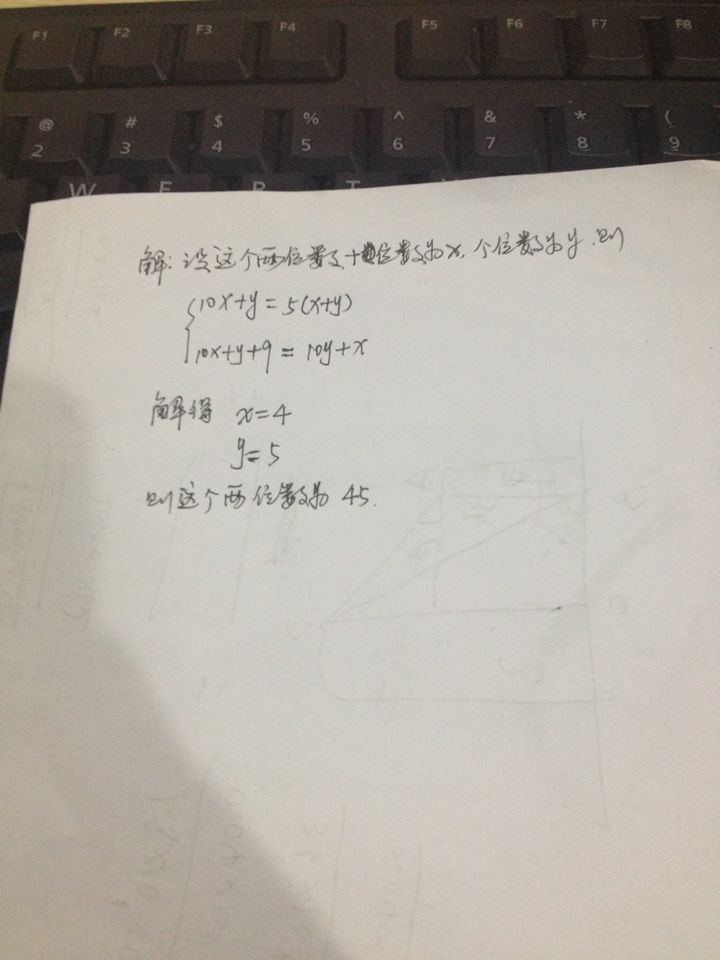 F1 F2 F3 F4 F5 F6 F7 F8
@ # $ % ^ & * (
2 3 4 5 6 7 8 9
W E R T
解:设这个两位数十位数为x,个位数为y.则
10x+y=5(x+y)
10x+y+9=10y+x
解得 x=4
y=5
则这个两位数为 45.